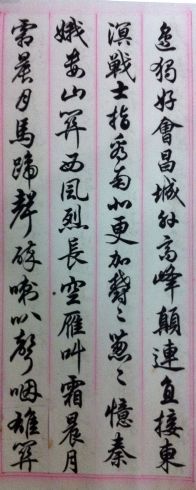 邊獨好會昌城外高峰顛連直接東
溟戰士指看南更加鬱々葱々憶秦
娥婁山關西風烈長空雁叫霜晨月
霜晨月馬蹄聲碎喇叭聲咽雄關